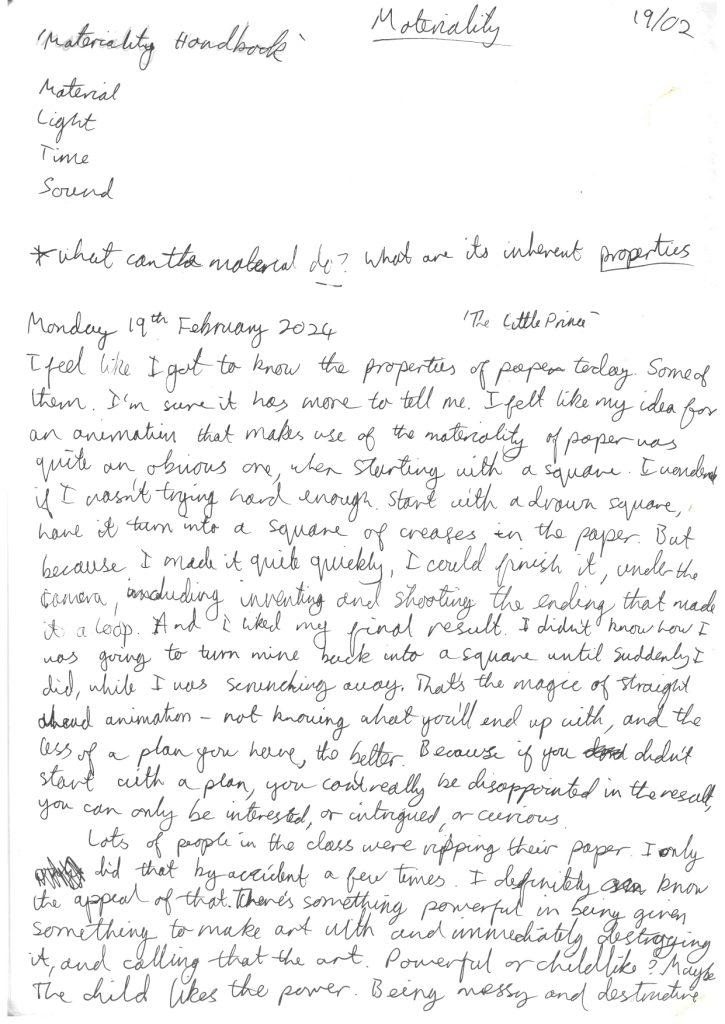 Materiality
19/02
'Materiality Handbook'
Material
Light
Time
Sound
* what can the material do? What are its inherent properties
Monday 19th February 2024
'The Little Prince'
I feel like I got to know the properties of paper today. Some of
them. I'm sure it has more to tell me. I felt like my idea for
an animation that makes use of the materiality of paper was
quite an obvious one, when starting with a square. I wonder
if I wasn't trying hard enough. Start with a drawn square,
have it turn into a square of creases in the paper. But
because I made it quite quickly, I could finish it, under the
camera, including inventing and shooting the ending that made
it a loop. And I liked my final result. I didn't know how I
was going to turn mine back into a square until suddenly I
did, while I was scrunching away. That's the magic of straight
ahead animation – not knowing what you'll end up with, and the
less of a plan you have, the better. Because if you didn't
start with a plan, you can't really be disappointed in the result,
you can only be interested, or intrigued, or curious.
Lots of people in the class were ripping their paper. I only
did that by accident a few times. I definitely know
the appeal of that. There's something powerful in being given
something to make art with and immediately destroying
it, and calling that the art. Powerful or childlike? Maybe
the child likes the power. Being messy and destructive